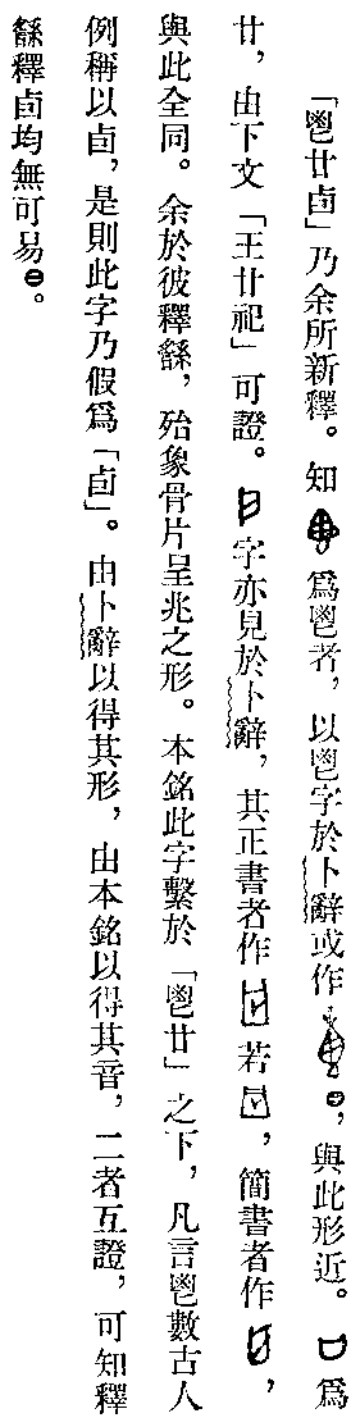 「鬯廿卣」乃余所新釋。知爲鬯者，以鬯字於卜辭或作㊀，與此形近。爲
廿，由下文「王廿祀」可證。字亦見於卜辭，其正書者作若，簡書者作，
與此全同。余於彼釋繇，殆象骨片呈兆之形。本銘此字繫於「鬯廿」之下，凡言鬯數古人
例稱以卣，是則此字乃假爲「卣」。由卜辭以得其形，由本銘以得其音，二者互證，可知釋
繇釋卣均無可易㊁。